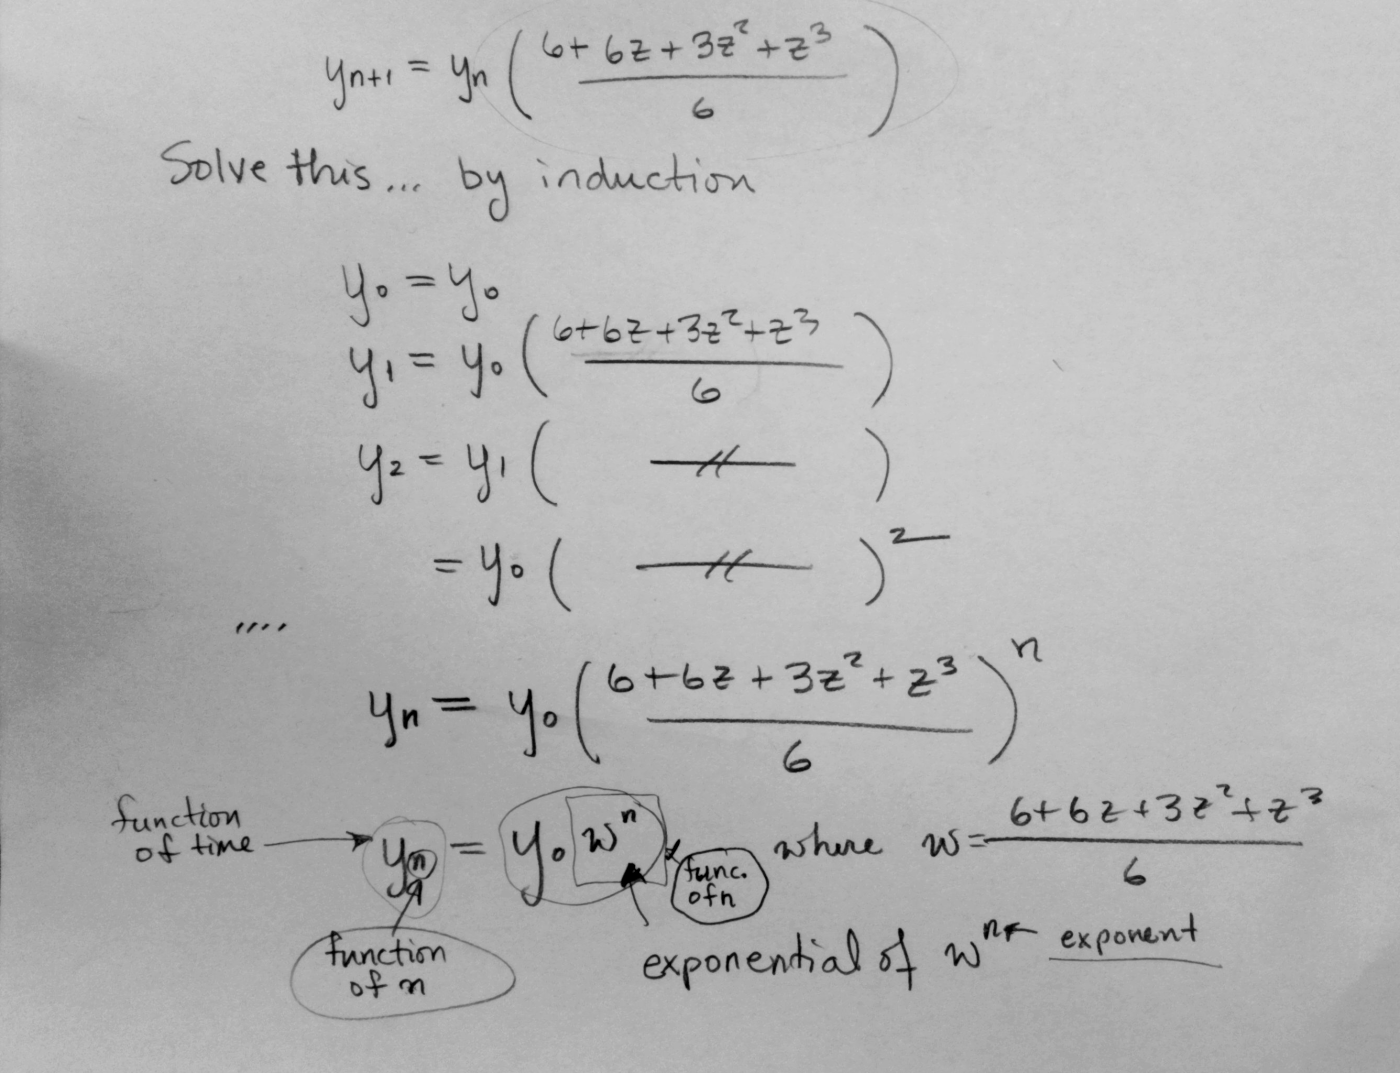 yₙ₊₁ = yₙ ( (6+6z+3z²+z³) / 6 )
Solve this... by induction
y₀ = y₀
y₁ = y₀ ( (6+6z+3z²+z³) / 6 )
y₂ = y₁ ( —//— )
= y₀ ( —//— )²
....
yₙ = y₀ ( (6+6z+3z²+z³) / 6 )ⁿ
function
of time
yₙ = y₀ wⁿ
func.
of n
where w = (6+6z+3z²+z³) / 6
function
of n
exponential of wⁿ ← exponent